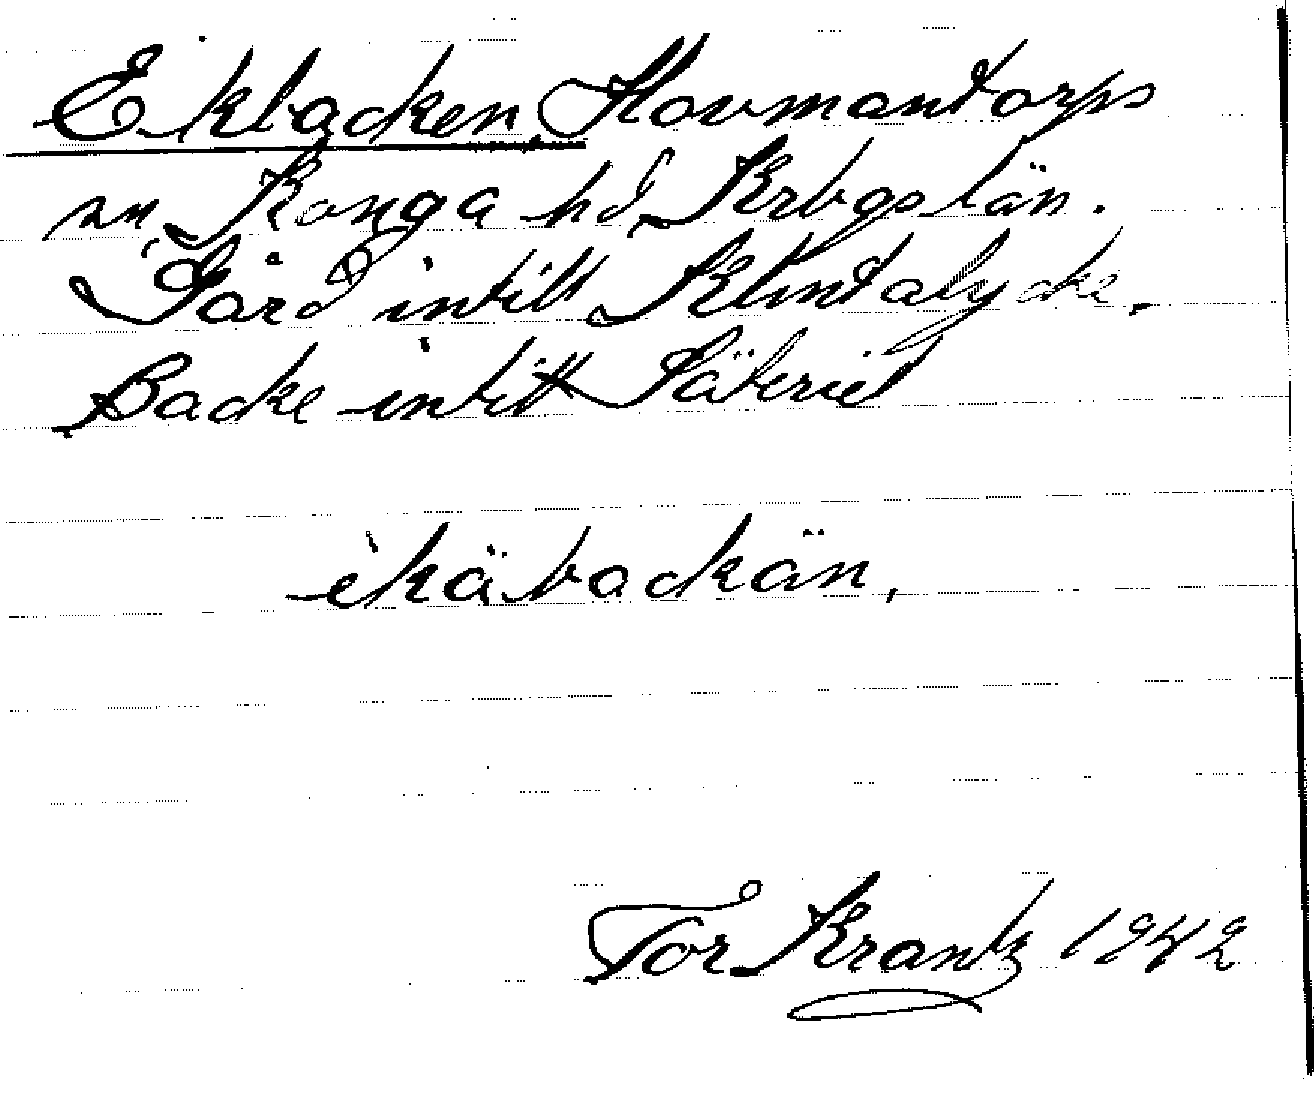 Ekbacken Hovmantorps
sn, Konga hd, Krbgs län.
Gärd intill Klintalycke.
Backe intill Säteriet
ekäbackän,
Tor Krantz 1942